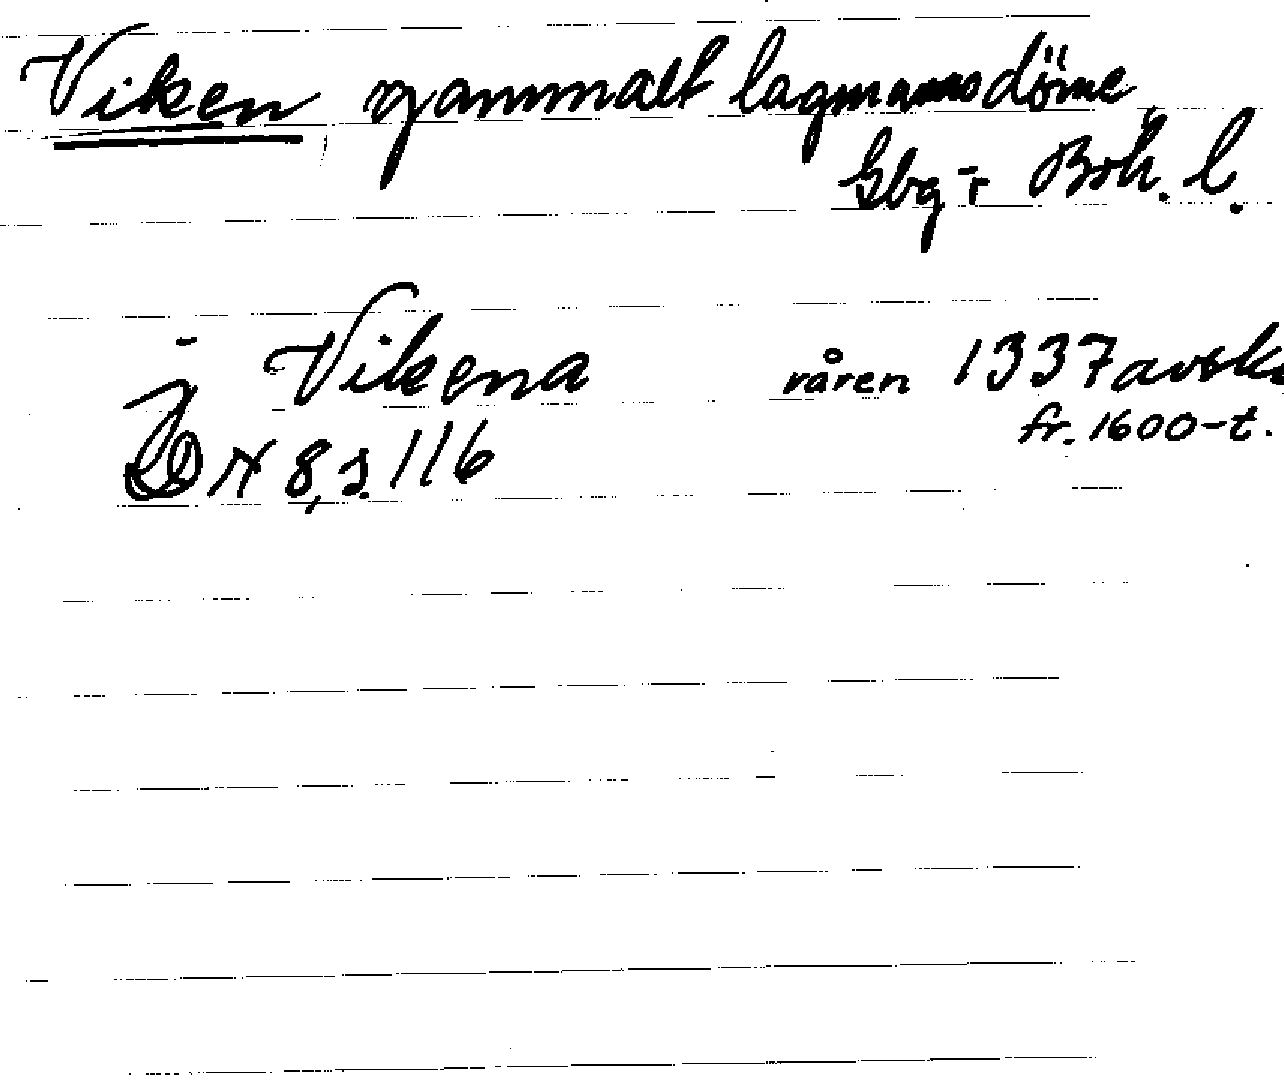 Viken, gammalt lagmansdöme,
Gbg-r Boh. l.
J Vikena våren 1337 avsk.
fr. 1600-t.
DN 8, s. 116